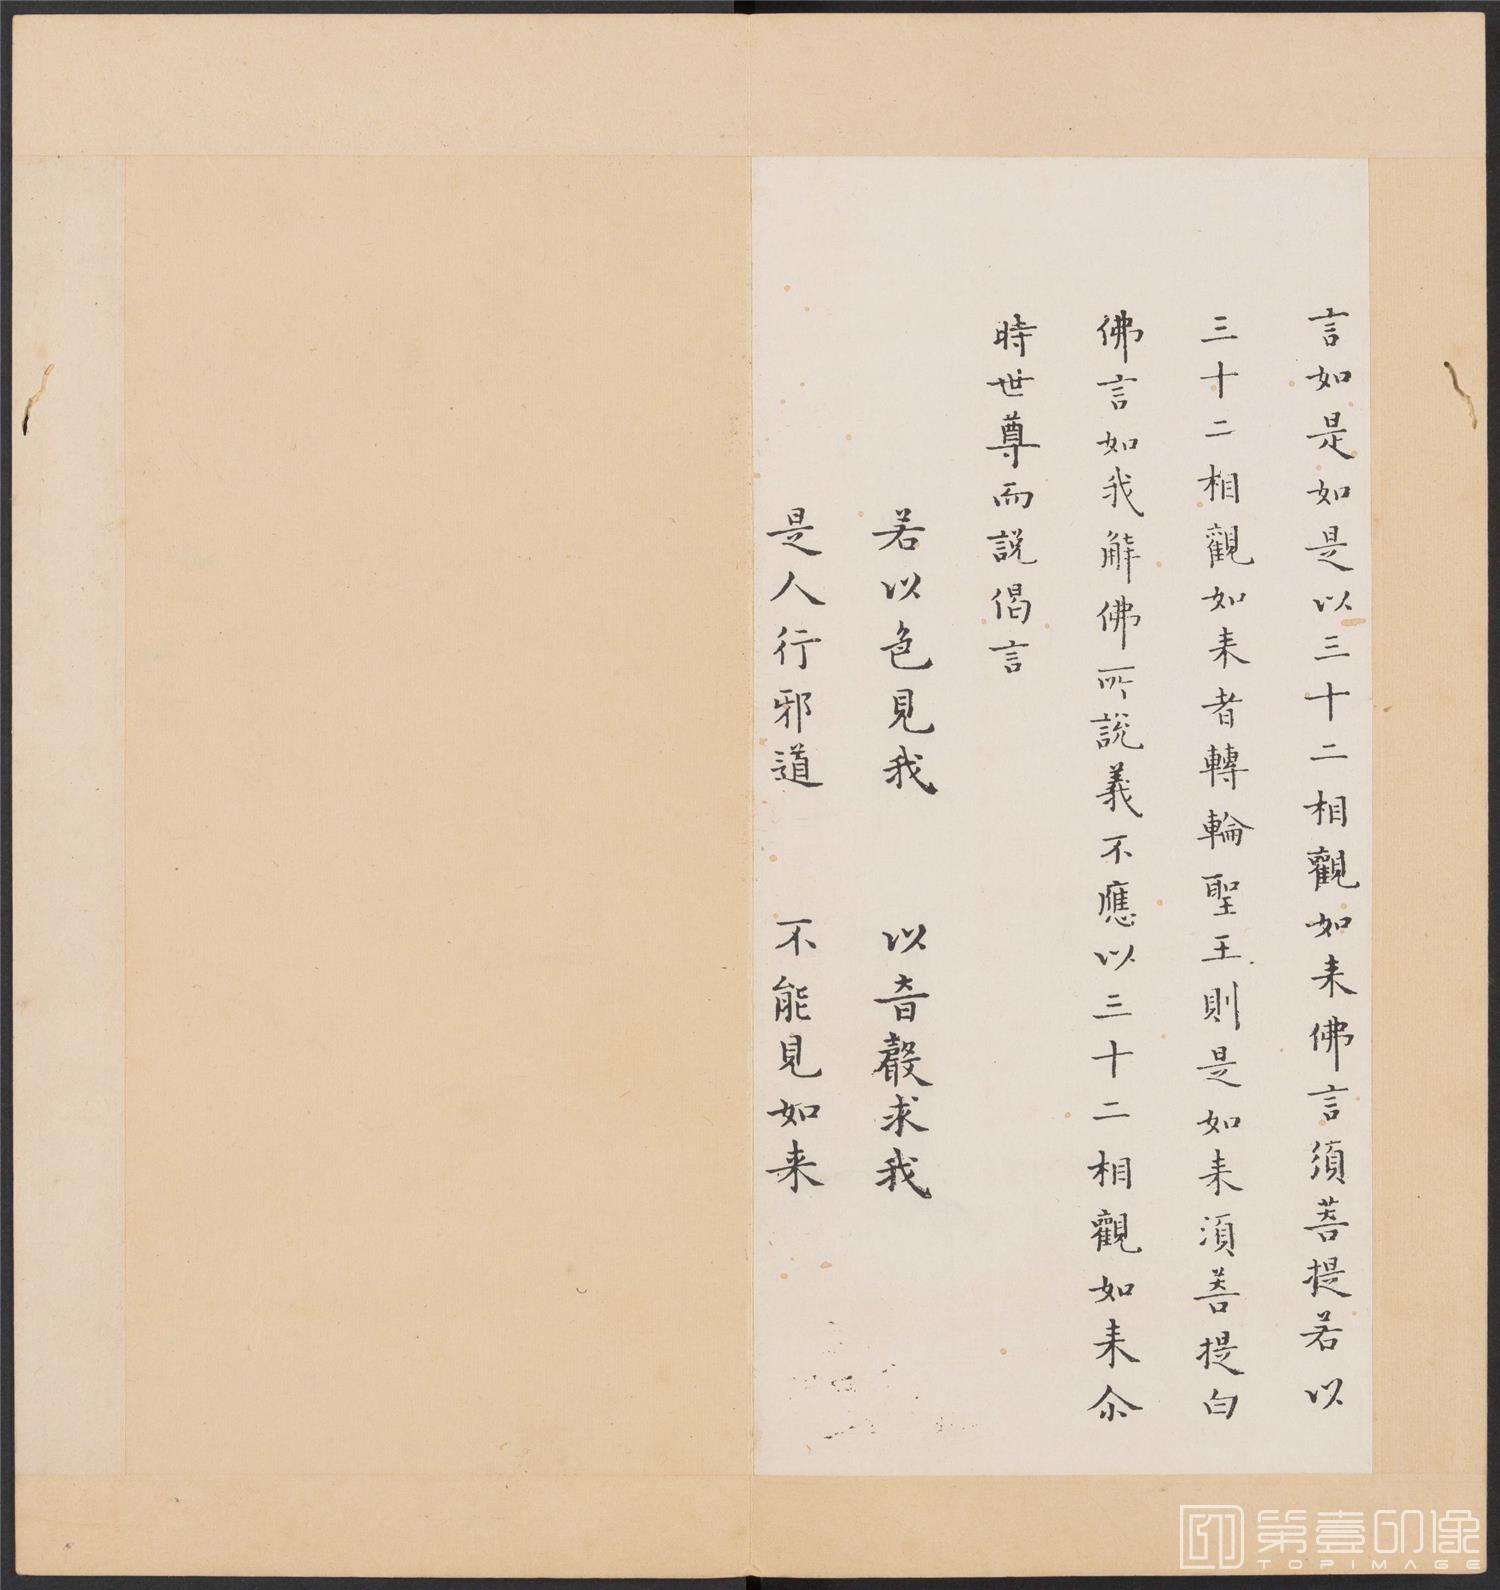 言如是如是以三十二相觀如来佛言須菩提若以
三十二相觀如来者轉輪聖王則是如来須菩提白
佛言如我解佛所說義不應以三十二相觀如来尒
時世尊而說偈言
若以色見我 以音聲求我
是人行邪道 不能見如来
第壹印像
TOPIMAGE